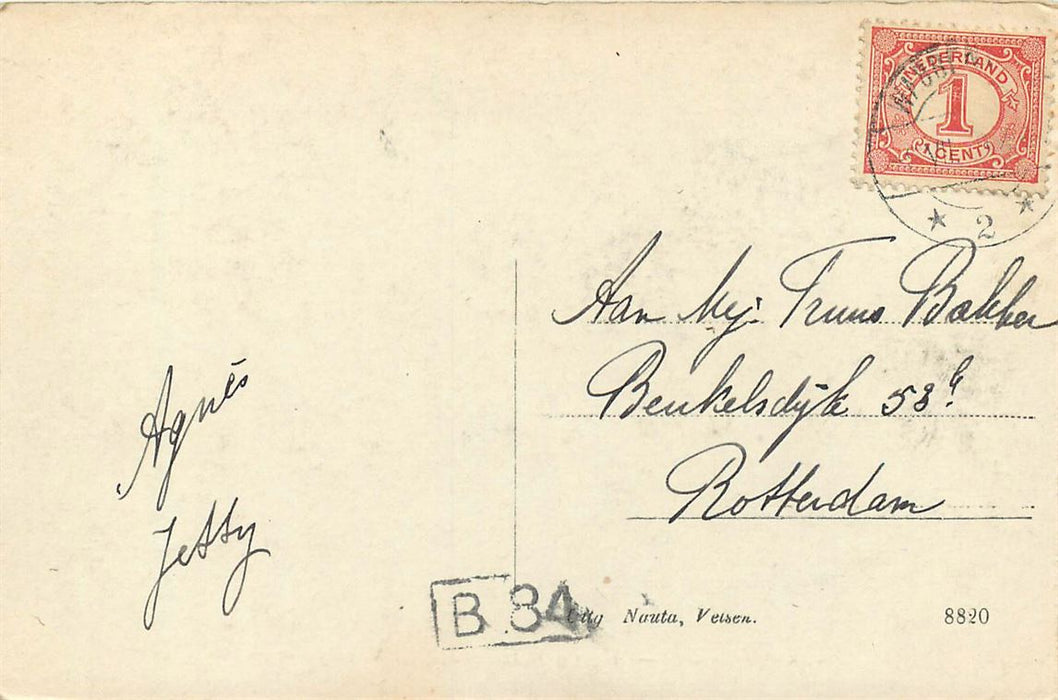 NEDERLAND
1
CENT
2
Aan Mej. Truus Bakker
Beukelsdijk 53
Rotterdam
Agnès
Jetty
B 34
Uitg Nauta, Velsen.
8820